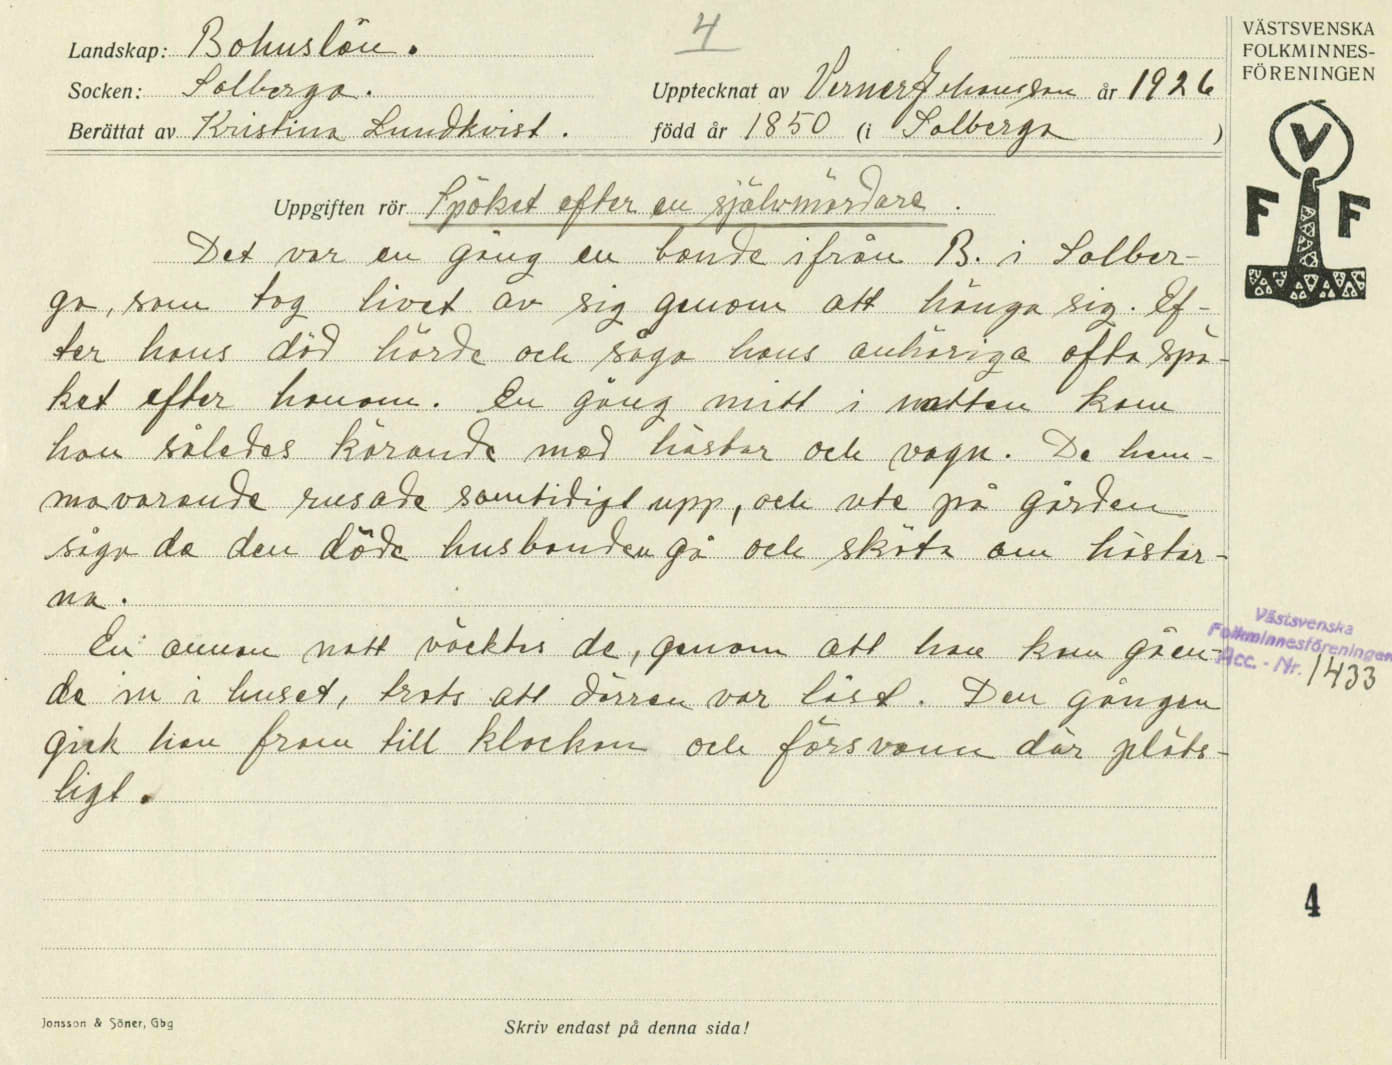 4
Landskap: Bohuslän.
Socken: Solberga.
Upptecknat av Verner Johansson år 1926
Berättat av Kristina Lundkvist.
född år 1850 (i Solberga)
Uppgiften rör Spöket efter en självmördare.
Det var en gång en bonde ifrån B. i Solber-
ga, som tog livet av sig genom att hänga sig. Ef-
ter hans död hörde och sågo hans anhöriga ofta spö-
ket efter honom. En gång mitt i natten kom
han således körande med hästar och vagn. De hem-
mavarande rusade samtidigt upp, och ute på gården
sågo de den döde husbonden gå och sköta om hästar-
na.
En annan natt väcktes de, genom att han kom gåen-
de in i huset, trots att dörren var låst. Den gången
gick han fram till klockan och försvann där plöts-
ligt.
Jonsson & Söner, Gbg
Skriv endast på denna sida!
VÄSTSVENSKA
FOLKMINNES-
FÖRENINGEN
V
F F
Västsvenska
Folkminnesföreningen
Acc. - Nr. 1433
4